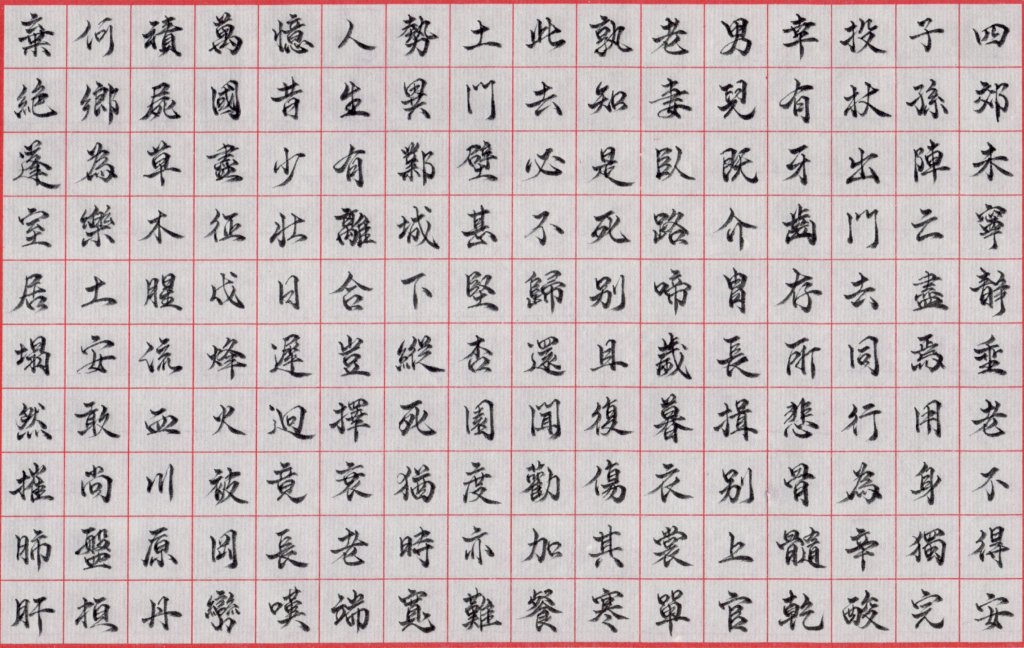 四郊未寧靜垂老不得安
子孫陣亡盡焉用身獨完
投杖出門去同行為辛酸
幸有牙齒存所悲骨髓乾
男兒既介冑長揖別上官
老妻臥路啼歲暮衣裳單
孰知是死別且復傷其寒
此去必不歸還聞勸加餐
土門壁甚堅杏園度亦難
勢異鄴城下縱死猶時寬
人生有離合豈擇衰老端
憶昔少壯日遲迴竟長嘆
萬國盡征戍烽火被岡巒
積屍草木腥流血川原丹
何鄉為樂土安敢尚盤桓
棄絕蓬室居塌然摧肺肝